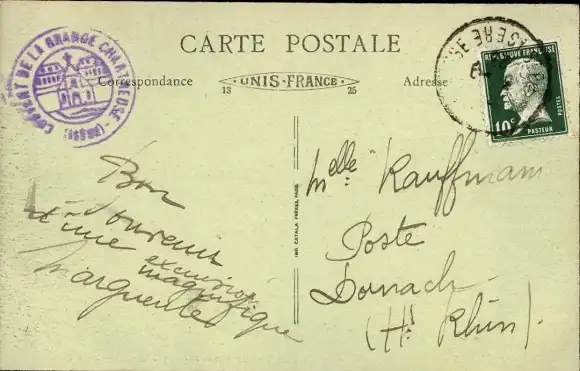 CARTE POSTALE
Correspondance
UNIS-FRANCE
Adresse
13
25
COUVENT DE LA GRANDE CHARTREUSE
ISERE
REPUBLIQUE FRANÇAISE
10c
POSTES
PASTEUR
Bon
Souvenir
d'une excursion
magnifique
Marguerite
IMP. CATALA FRÈRES, PARIS
Melle Kauffmann
Poste
Dornach
(Ht Rhin).